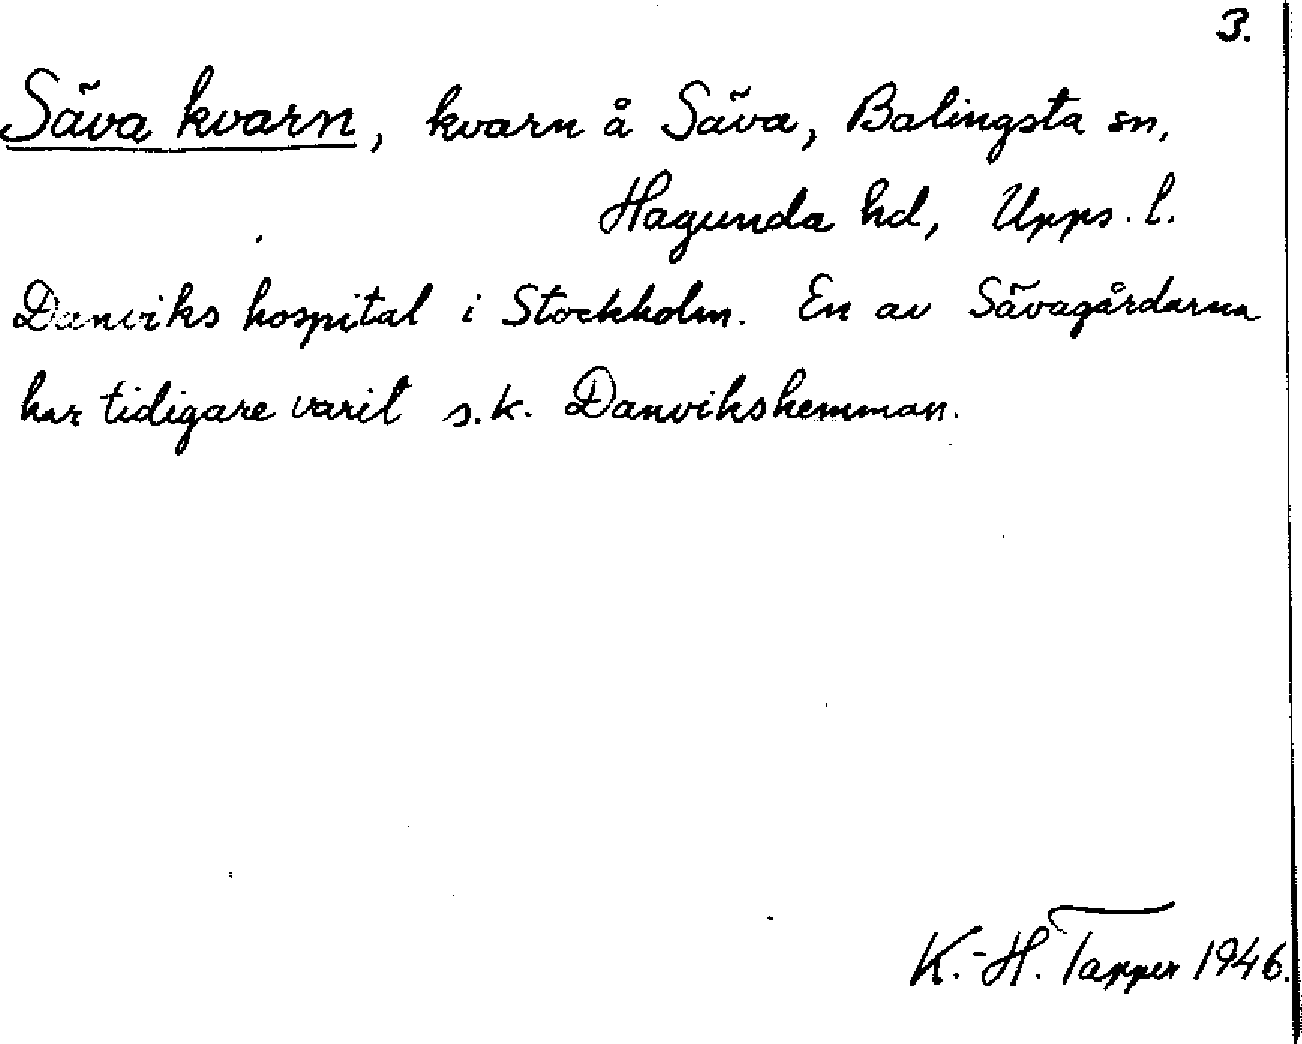 3.
Säva kvarn, kvarn å Säva, Balingsta sn,
Hagunda hd, Upps. l.
Danviks hospital i Stockholm. En av Sävagårdarna
har tidigare varit s.k. Danvikshemman.
K.-H. Tapper 1946.